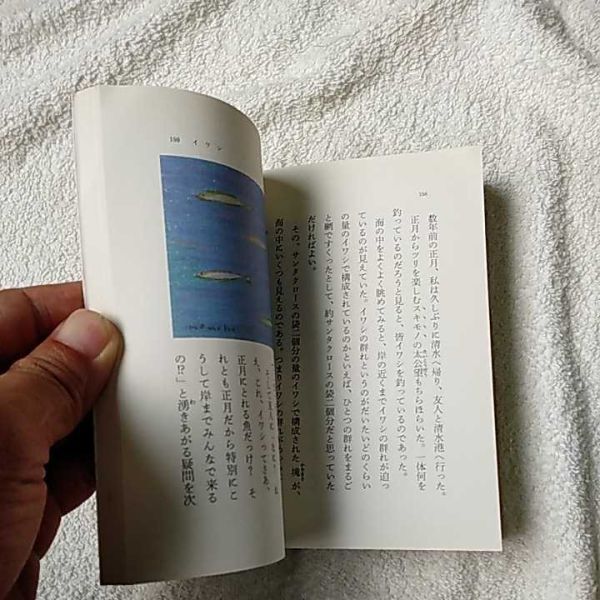 158
数年前の正月、私は久しぶりに清水へ帰り、友人と清水港へ行った。
正月からツリを楽しむスキモノの太公望もちらほらいた。一体何を
釣っているのだろうと見ると、皆イワシを釣っているのであった。
海の中をよくよく眺めてみると、岸の近くまでイワシの群れが迫っ
ているのが見えていた。イワシの群れというのがだいたいどのくらい
の量のイワシで構成されているのかといえば、ひとつの群れをまるご
と網ですくったとして、約サンタクロースの袋二個分だと思っていた
だければよい。
その、サンタクロースの袋二個分の量のイワシで構成された塊が、
海の中にいくつも見えるのである。つまりイワシの群れが
イワシ
momoko
え、これ、イワシってさあ、
正月にとれる魚だっけ？ そ
れとも正月だから特別にこ
うして岸までみんなで来る
の!?」と湧きあがる疑問を次